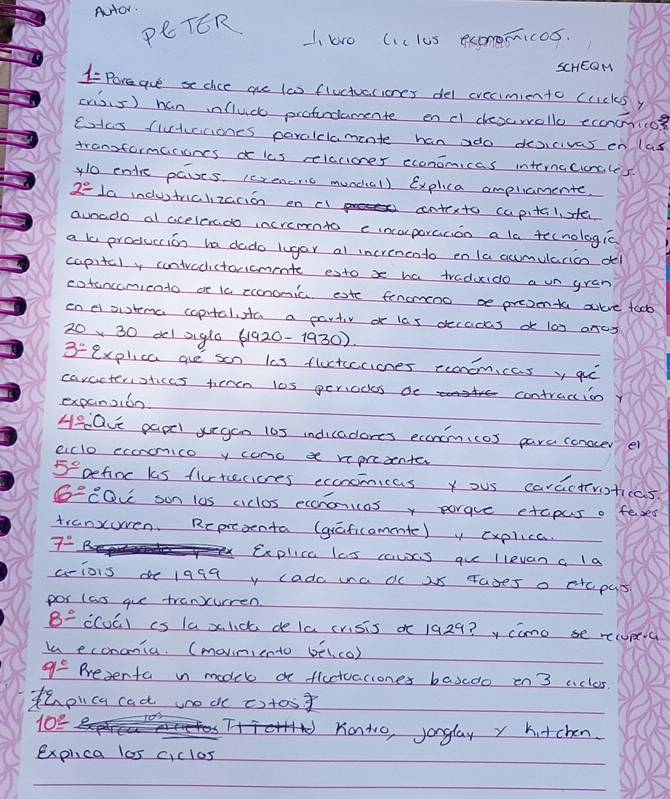 Autor.
PETER
Libro Ciclos economicos.
SCHEQM
1= Porque se dice que las fluctuaciones del crecimiento (ciclos y
crisis) han influido profundamente en el desarrollo económico?
Estas fluctuaciones paralelamente han sido desicivas en las
transformaciones de las relaciones económicas internacionales
y/o entre paises. (exenario mundial) Explica ampliamente
2º la industrialización en el contexto capitalista
aunado al acelerado incremento e incorporación a la tecnologia
a la producción ha dado lugar al incremento en la acumulación del
capital y contradictoriamente esto se ha traducido a un gran
estancamiento de la economía. este fenomeno se presenta sobre todo
en el sistema capitalista a partir de las decadas de los años
20 y 30 del siglo (1920-1930).
3= Explica qué son las fluctuaciones económicas y qué
caracteristicas tienen los periodos de contracción y
expansión.
4º ¿Qué papel juegan los indicadores económicos para conocer el
ciclo económico y como se representa
5º Define las fluctuaciones económicas y sus carácteristicas.
6º ¿Qué son los ciclos económicos y porque etapas o fases
tranxurren. Representa (gráficamente) y explica.
7º Explica las causas que llevan a la
crisis de 1999 y cada una de sus fases o etapas.
por las que tranxurren.
8º ¿Cuál es la salida de la crisis de 1929? y cómo se recupera
la economía. (movimiento bélico)
9º Presenta un modelo de fluctuaciones basado en 3 ciclos.
Explica cada uno de estos
10º Kontio, jonglay y kitchen.
Explica los ciclos